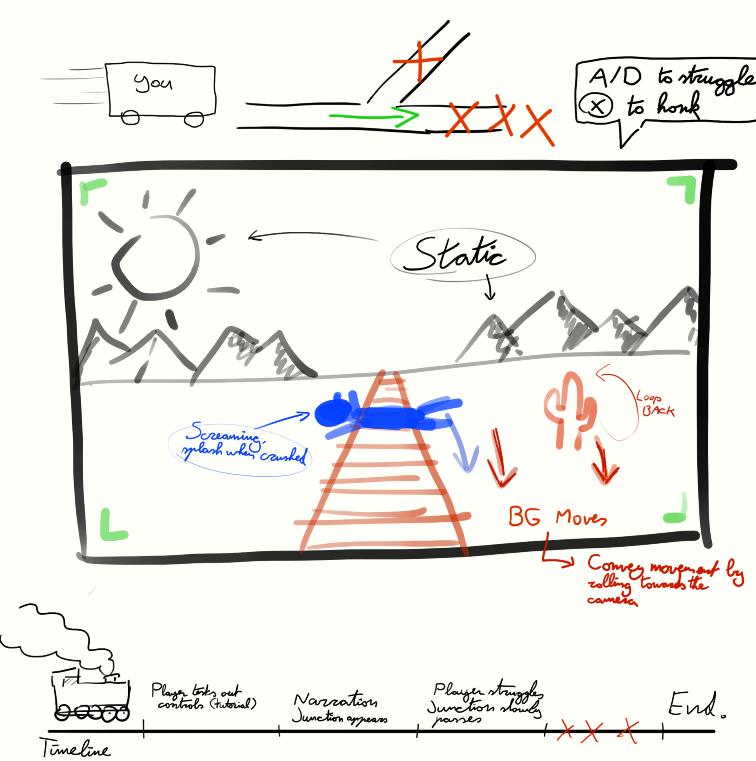 you
A/D to struggle
X to honk
Static
Screaming,
splash when crushed
Loop
BACK
BG Moves
Convey movement by
rolling towards the
camera
Player tests out
controls (tutorial)
Narration
Junction appears
Player struggles
Junction slowly
passes
End.
Timeline